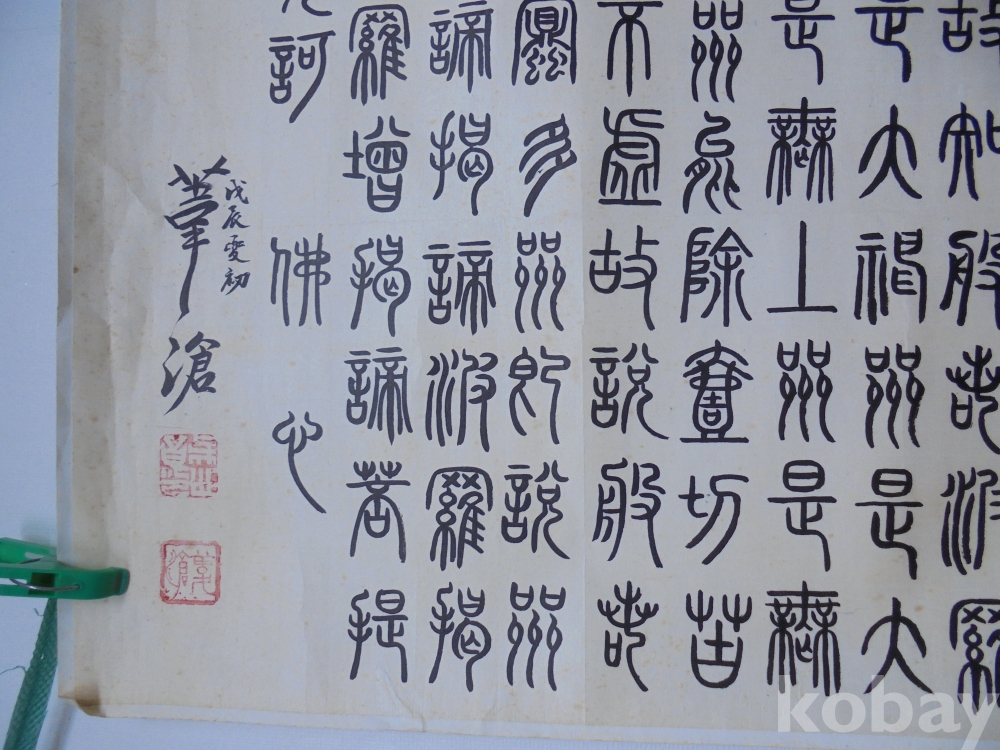 故知般若波羅
是大神呪是大
是無上呪是無
呪能除壹切苦
不虛故說般若
蜜多呪即說呪
諦揭諦波羅揭
羅增揭諦菩提
訶 佛心
戊辰夏初
葦滄
葦滄
kobay